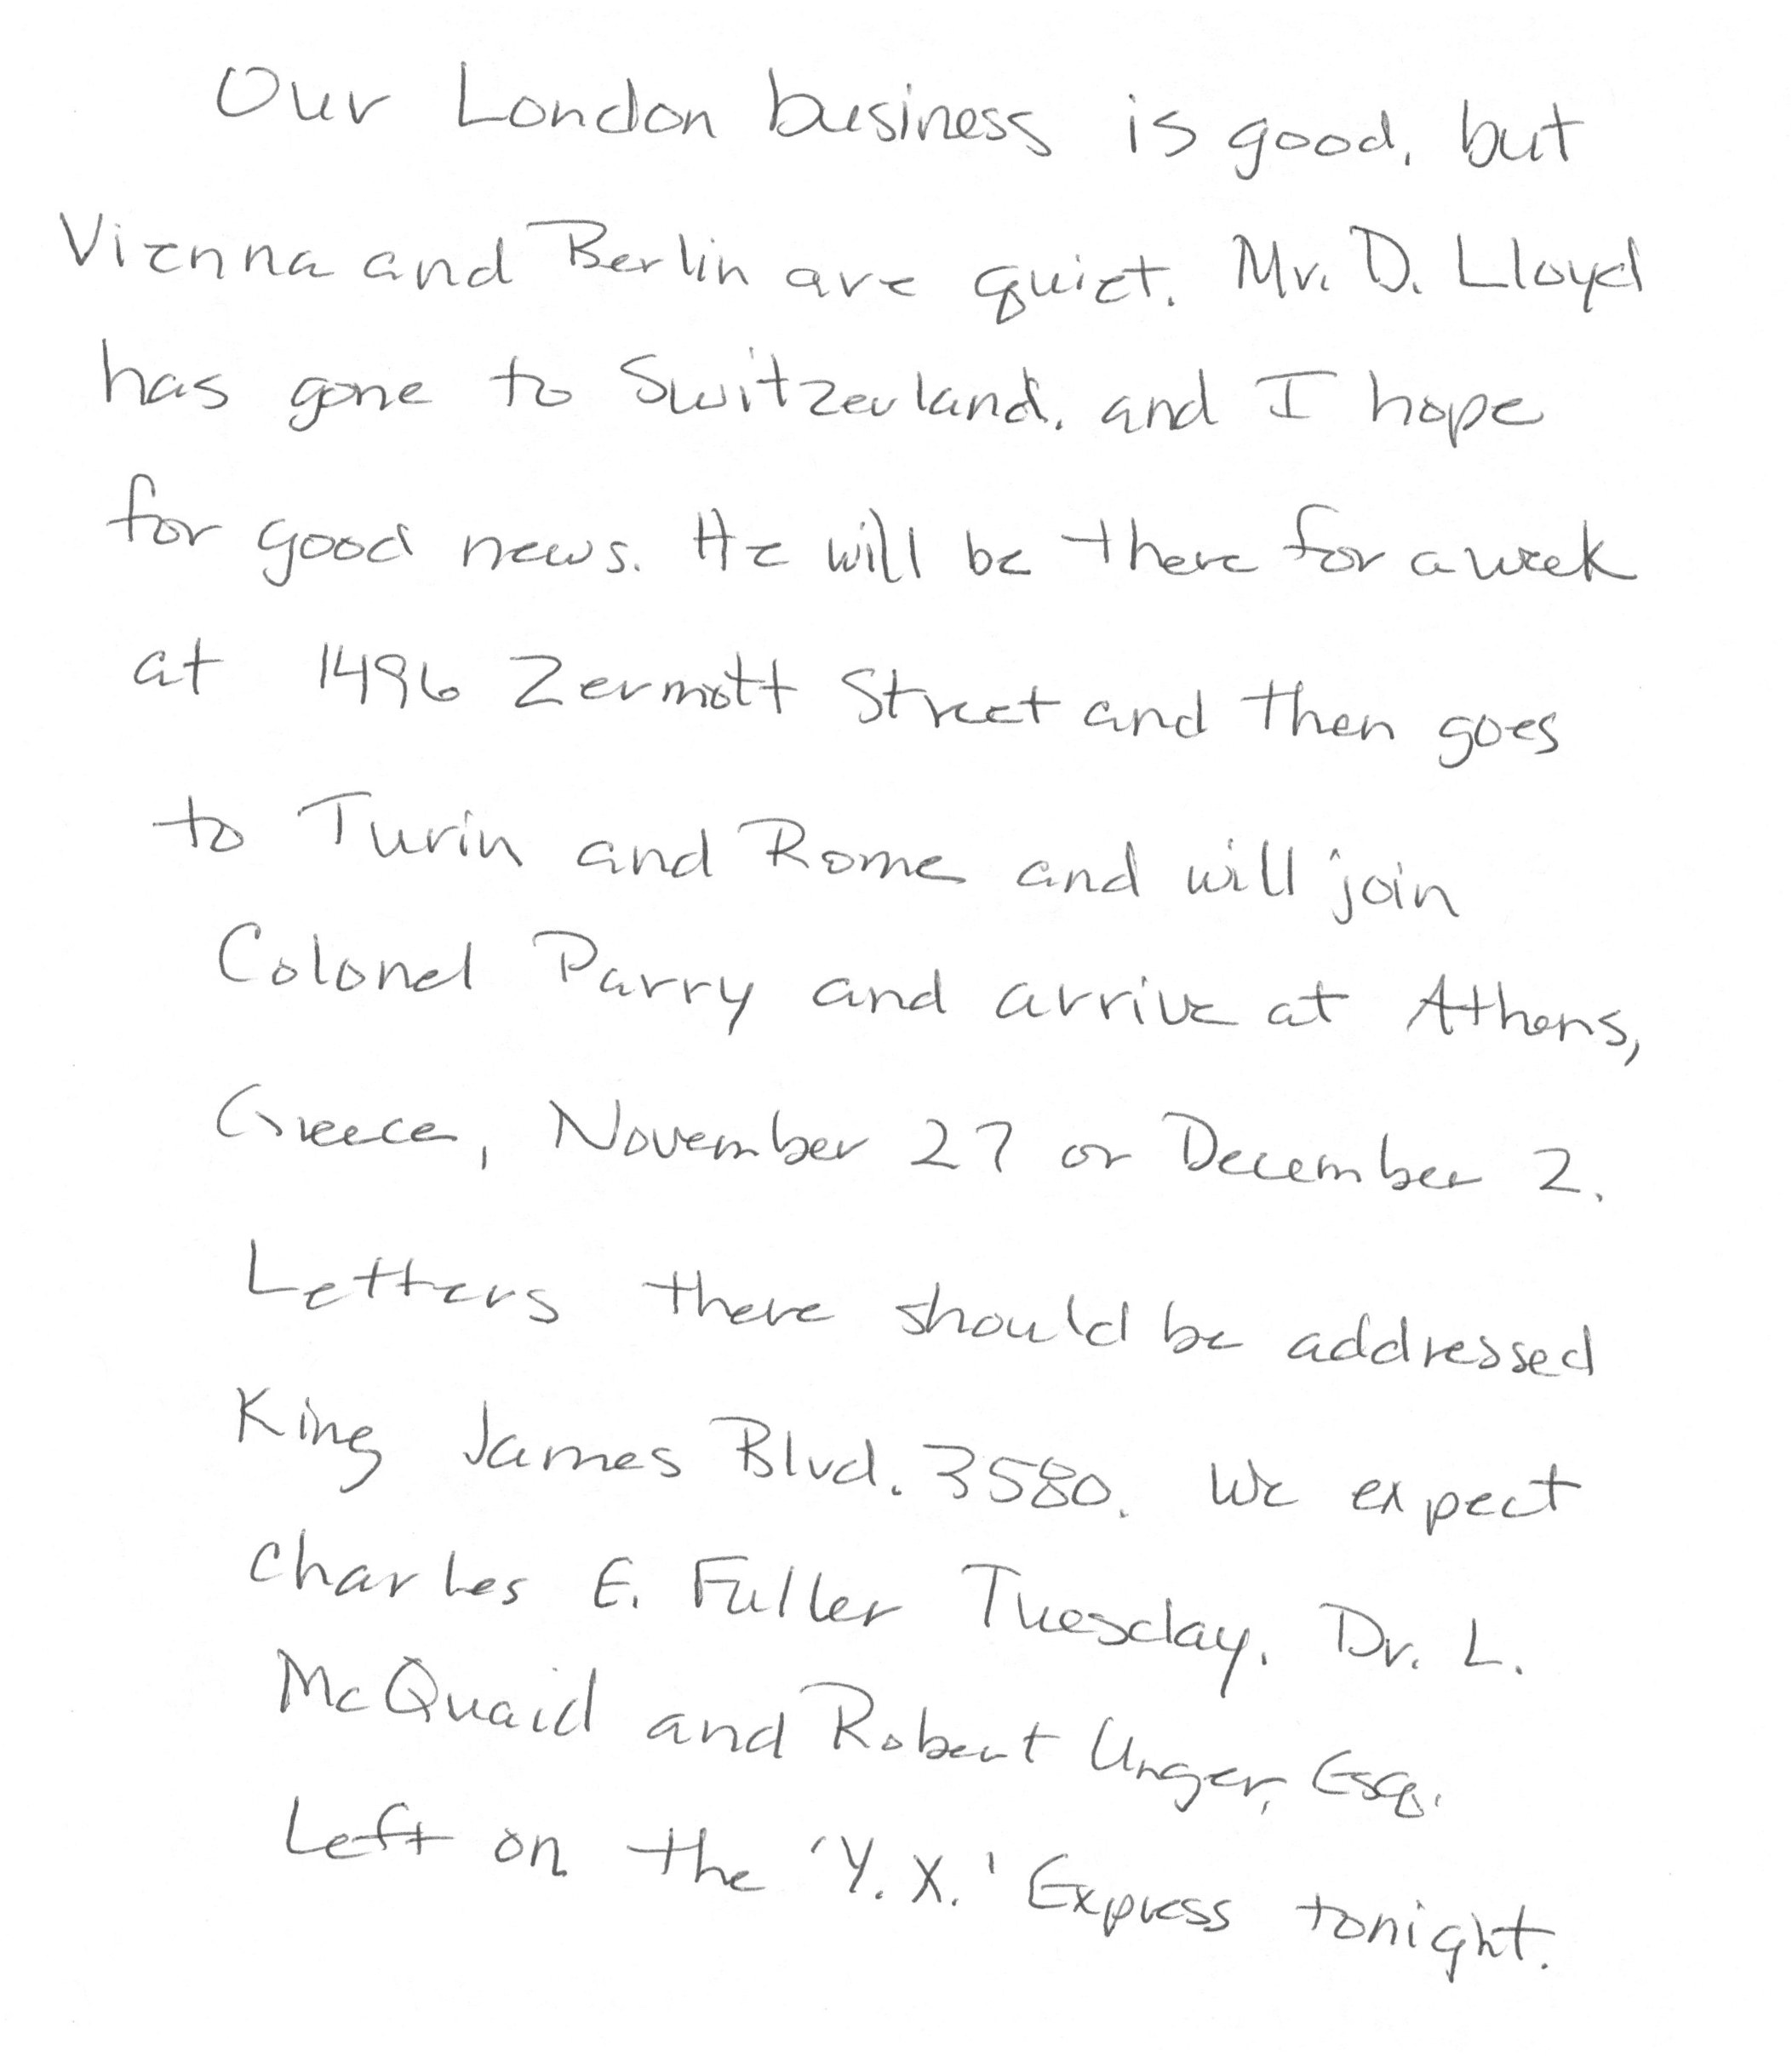 Our London business is good, but
Vienna and Berlin are quiet. Mr. D. Lloyd
has gone to Switzerland, and I hope
for good news. He will be there for a week
at 1496 Zermott Street and then goes
to Turin and Rome and will join
Colonel Parry and arrive at Athens,
Greece, November 27 or December 2.
Letters there should be addressed
King James Blvd. 3580. We expect
Charles E. Fuller Tuesday. Dr. L.
McQuaid and Robert Unger, Esq.
Left on the 'Y.X.' Express tonight.